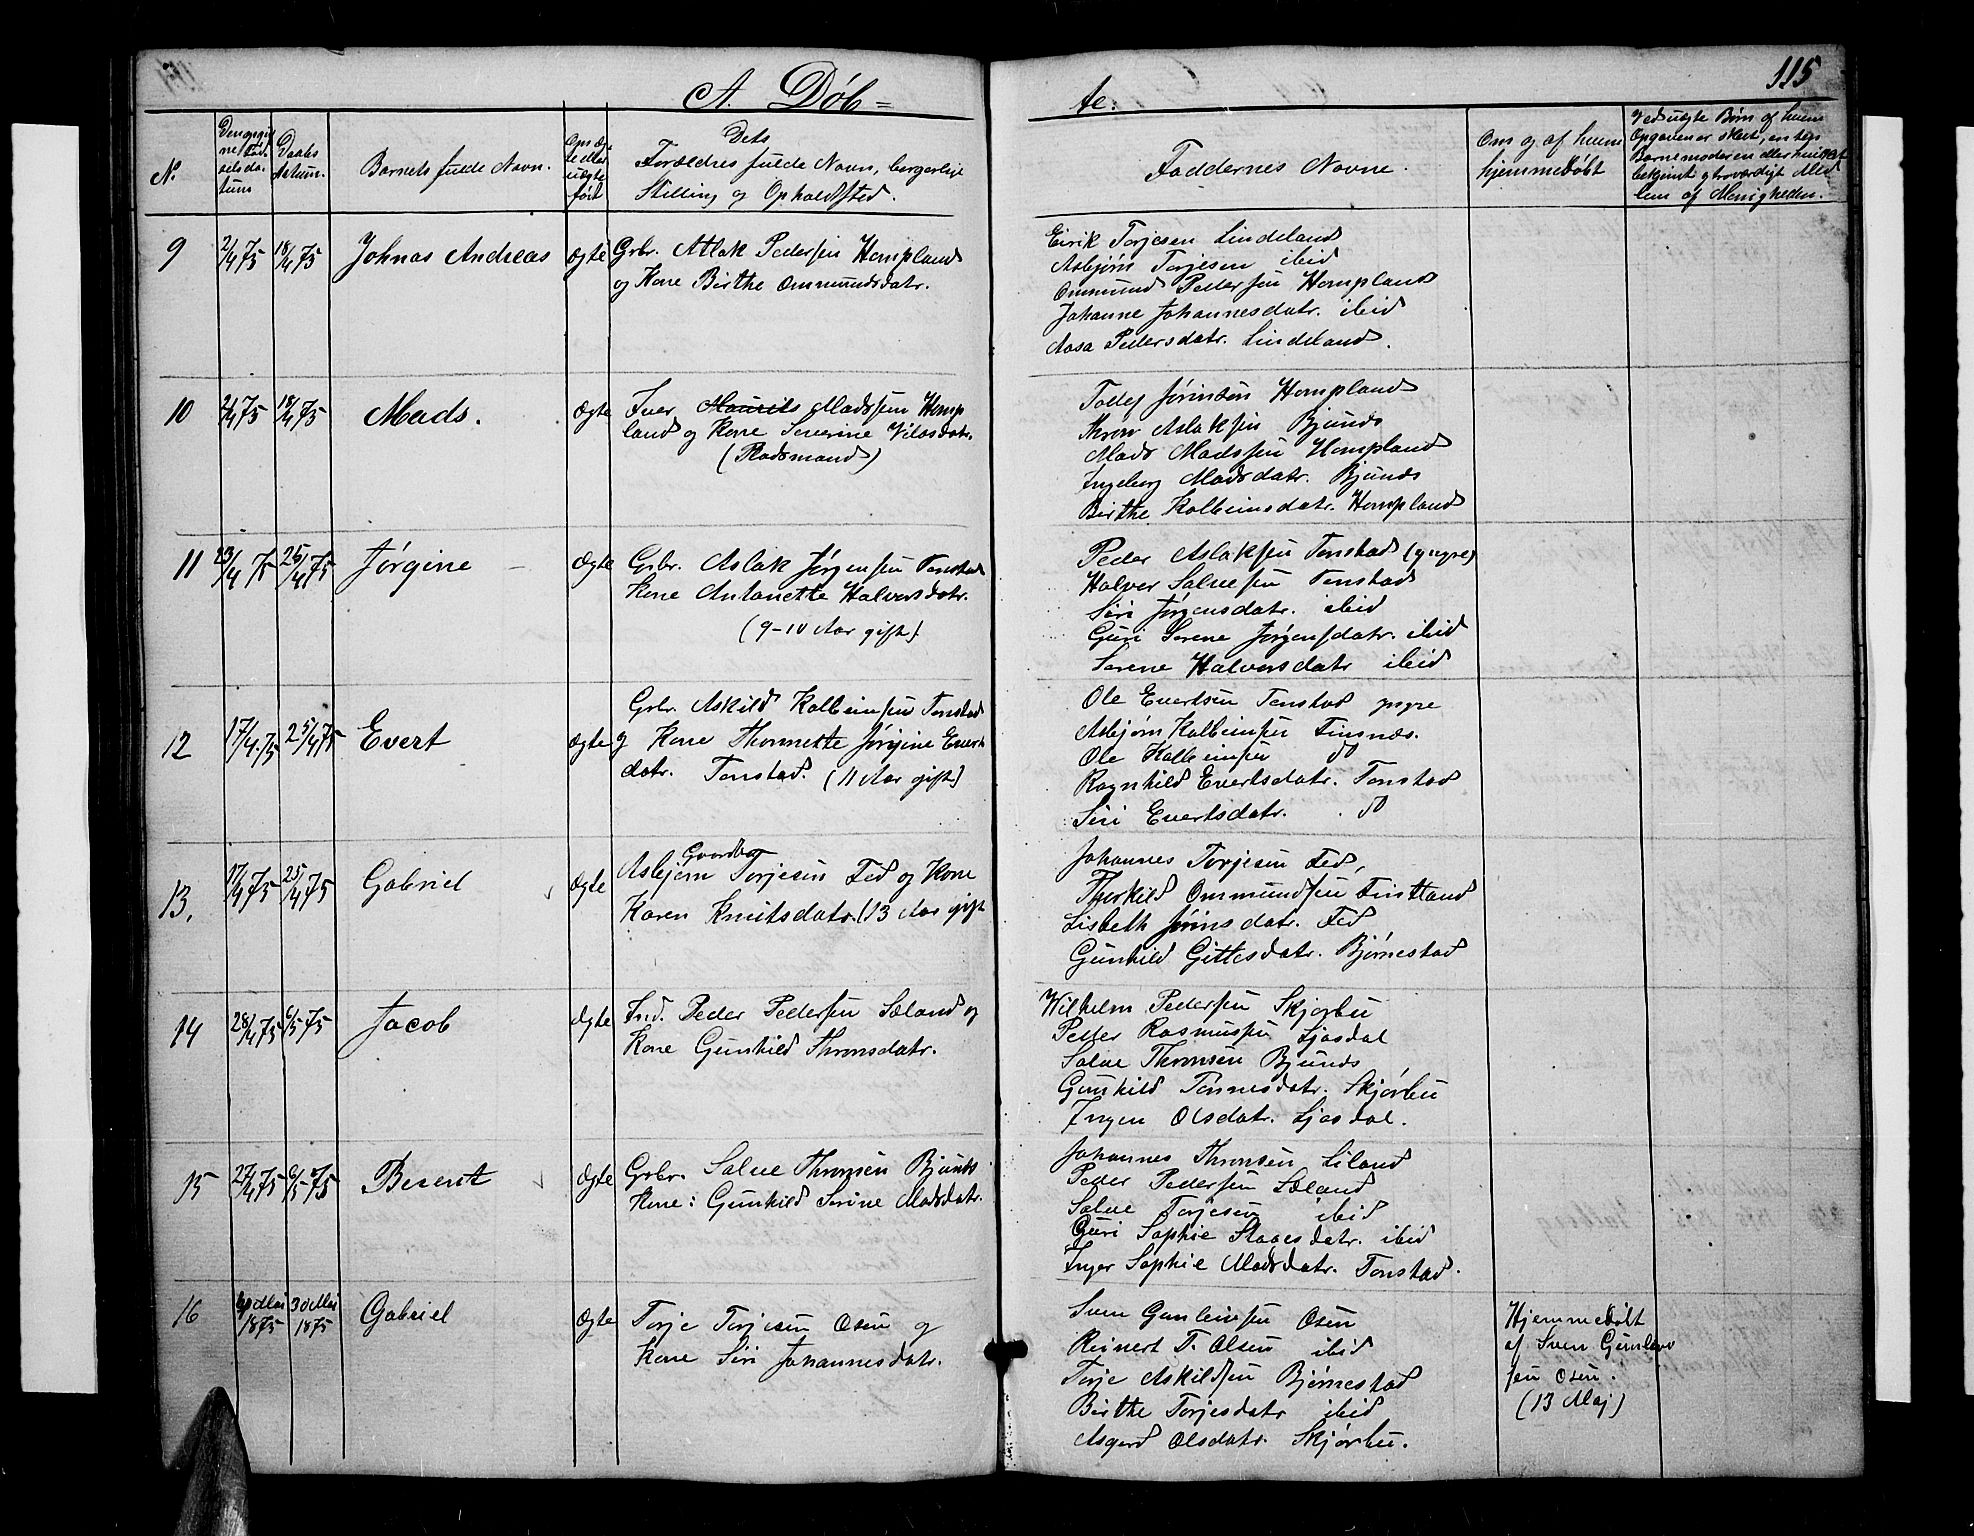 115
A. Døb=
te.
No.
Daabs
datum.
Barnets fulde Navn.
Dets
Forældres fulde Navn, borgerlige
Stilling og Opholdssted.
Faddernes Navne.
Om og af hvem
hjemmedøbt
9
2/4 75
18/4 75
Johnas Andreas
ægte
Grbr. Atlak Pedersen Hompland
og Kone Birthe Ommundsdatr.
Eirik Torjesen Lindeland
Asbjørn Torjesen ibid
Ommund Pedersen Hompland
Johanne Johannesdatr. ibid
Aasa Pedersdatr. Lindeland.
10
2/4 75
18/4 75
Mads.
ægte
Iver Maurits Madssen Homp
land og Kone Severine
(Pladsmand)
Hompland
Aslaksen Bjunes
Mads Madssen Hompland
Ingeborg Madsdatr. Bjunes
Birthe Kolbeinsdatr. Hompland
11
23/4 75
25/4 75
Jørgine
ægte
Grbr. Aslak Jørgensen Tonstad
Kone Antonette Halvorsdatr.
(9-10 Aar gift)
Peder Aslaksen Tonstad (yngre)
Halvor Salvesen Tonstad
Siri Jørgensdatr. ibid
Guri Serene Jørgensdatr. ibid
Serene Halvorsdatr ibid
12
17/4 75
25/4 75
Evert
ægte
Grbr. Askild Kolbeinsen Tonstad
og Kone Thonnette Jørgine Everts
datr. Tonstad. (11 Aar gift)
Ole Evertsen Tonstad yngre
Asbjørn Kolbeinsen Finsnæs.
Ole Kolbeinsen do
Ragnhild Evertsdatr. Tonstad
Siri Evertsdatr. do
13.
17/4 75
25/4 75
Gabriel
ægte
Gaardbr
Asbjørn Torjesen Fed og Kone
Karen Knutsdatr. (13 Aar gift
Johannes Torjesen Fed,
Therkild Ommundsen Fintland
Lisbeth Jørinsdatr. Fed
Gunhild Gittesdatr. Bjørnestad
14
28/4 75
6/5 75
Jacob
ægte
Ind. Peder Pedersen Sæland og
Kone Gunhild Thronsdatr.
Wilhelm Pedersen Skjørbu
Peder Rasmussen Ljosdal
Salve Thronsen Bjunes
Gunhild Tønnesdatr. Skjørbu
Ingen Olsdatr. Ljosdal.
15
27/4 75
6/5 75
Berent
ægte
Grbr. Salve Thronsen Bjunes
Kone: Gunhild Serine Madsdatr.
Johannes Thronsen Liland
Peder Pedersen Sæland
Salve Torjesen ibid
Guri Sophie Staalesdatr. ibid
Inger Sophie Madsdatr. Tonstad.
16
Mai
1875
30 Mai
1875
Gabriel
ægte
Torje Torjesen Osen og
Kone Siri Johannesdatr.
Sven Gunleiksen Osen
Reinert T. Olsen ibid
Torje Askildsen Bjørnestad
Birthe Torjesdatr ibid
Asgerd Olsdatr. Skjørbu.
Hjemmedøbt
af Sven Gunleiv
sen Osen.
(13 Maj)